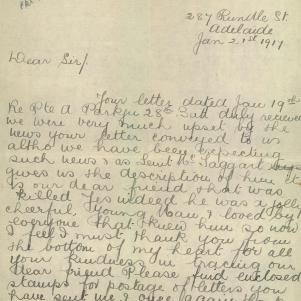 287 Rundle St.
Adelaide
Jan 21st 1917
Dear Sir/.
Your letter dated Jan 19th
Re Pte A Park 28th Batt duly received
we were very much upset by the
news your letter conveyed to us
altho we have been expecting
such news, as Lieut McTaggart
gives us the description of him it
is our dear friend that was
killed. Yes indeed he was a jolly
cheerful, young man, loved by
everyone that knew him so now
I feel I must thank you from
the bottom of my heart for all
your kindness in tracing our
dear friend Please find enclosed
stamps for postage of letters you
have sent me, I once again